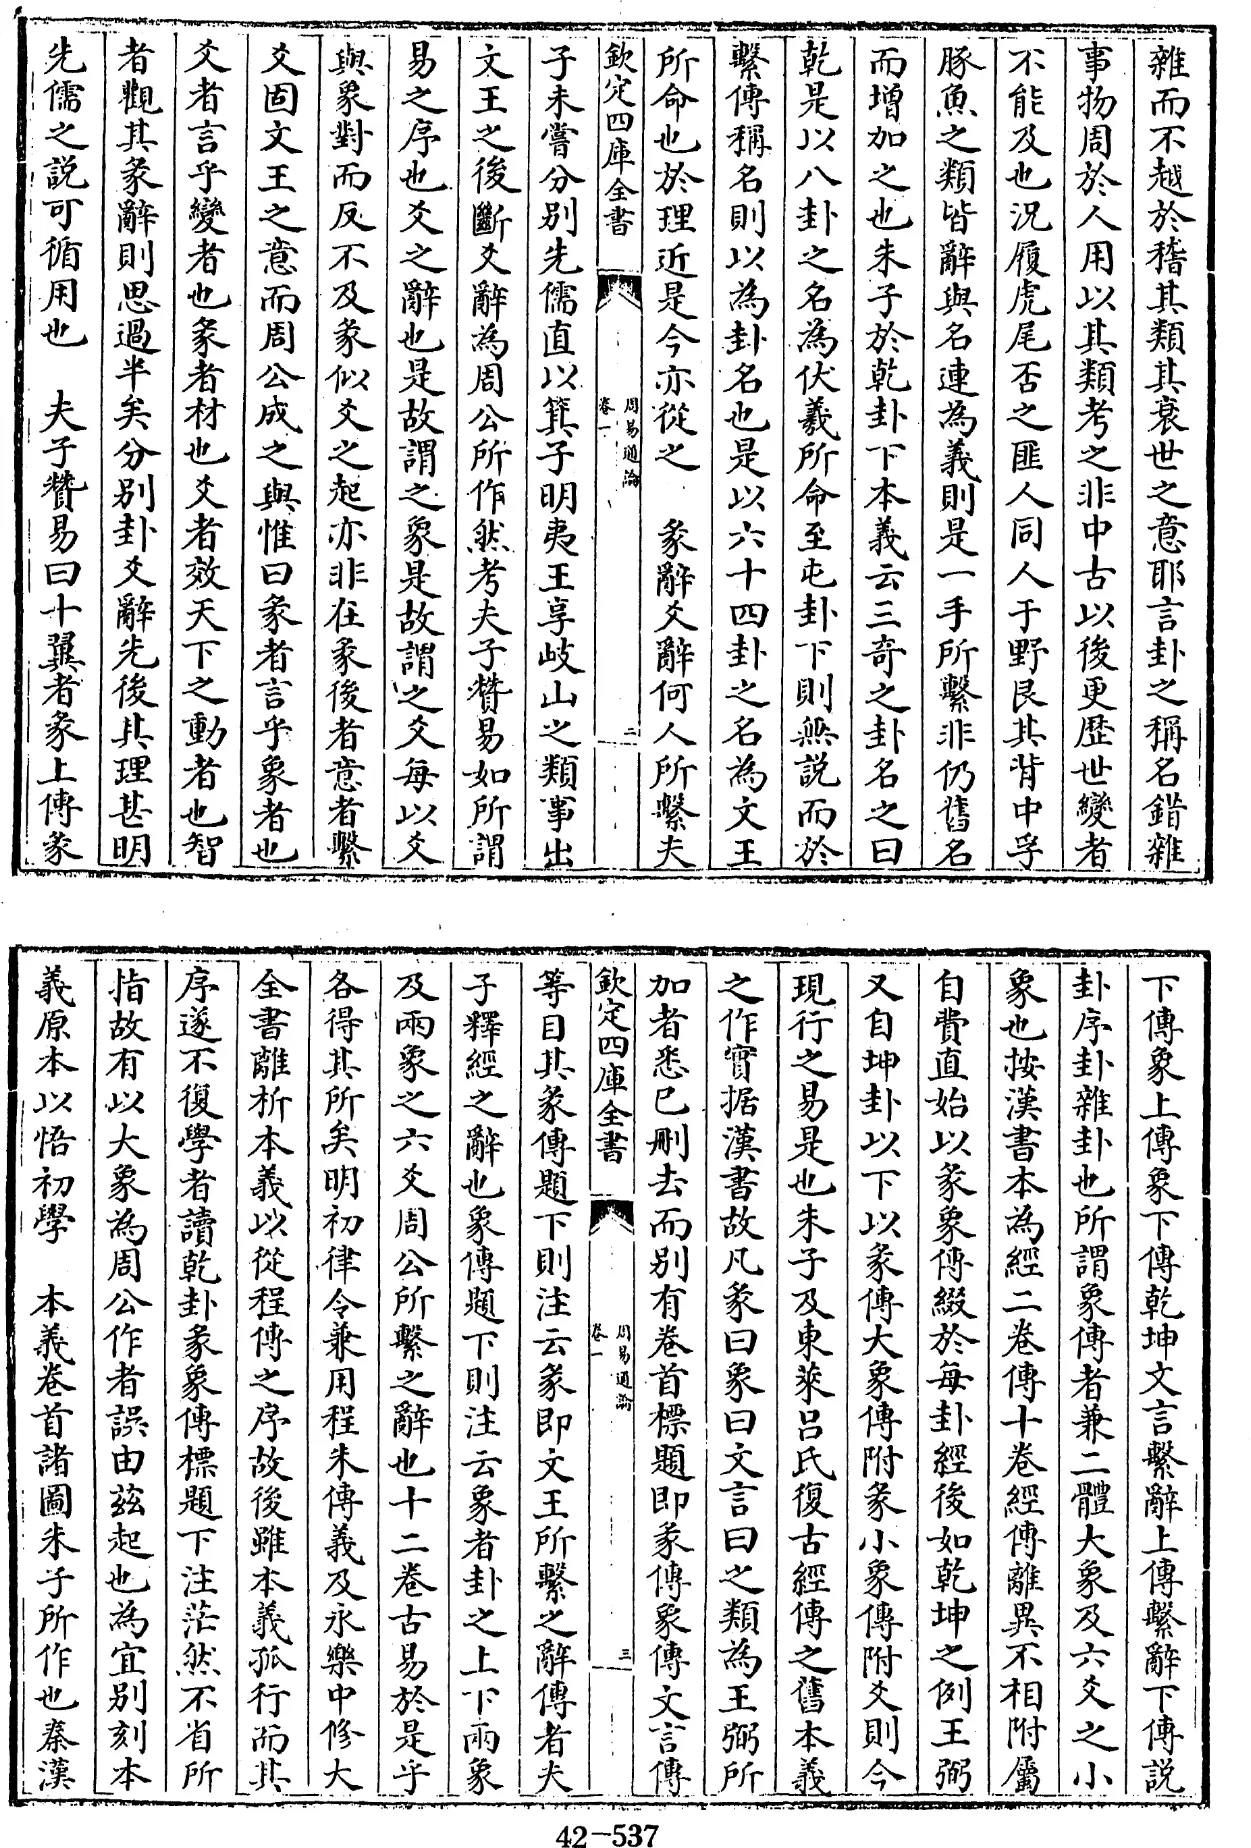 雜而不越於稽其類其衰世之意耶言卦之稱名錯雜
事物周於人用以其類考之非中古以後更歷世變者
不能及也況履虎尾否之匪人同人于野艮其背中孚
豚魚之類皆辭與名連為義則是一手所繫非仍舊名
而增加之也朱子於乾卦下本義云三奇之卦名之曰
乾是以八卦之名為伏羲所命至屯卦下則無說而於
繫傳稱名則以為卦名也是以六十四卦之名為文王
所命也於理近是今亦從之　彖辭爻辭何人所繫夫
欽定四庫全書
周易通論
卷一
二
子未嘗分別先儒直以箕子明夷王享岐山之類事出
文王之後斷爻辭為周公所作然考夫子贊易如所謂
易之序也爻之辭也是故謂之象是故謂之爻每以爻
與象對而反不及彖似爻之起亦非在彖後者意者繫
爻固文王之意而周公成之與惟曰彖者言乎象者也
爻者言乎變者也彖者材也爻者效天下之動者也智
者觀其彖辭則思過半矣分別卦爻辭先後其理甚明
先儒之說可循用也　夫子贊易曰十翼者彖上傳彖
下傳象上傳象下傳乾坤文言繫辭上傳繫辭下傳說
卦序卦雜卦也所謂象傳者兼二體大象及六爻之小
象也按漢書本為經二卷傳十卷經傳離異不相附屬
自費直始以彖象傳綴於每卦經後如乾坤之例王弼
又自坤卦以下以彖傳大象傳附彖小象傳附爻則今
現行之易是也朱子及東萊呂氏復古經傳之舊本義
之作實据漢書故凡彖曰象曰文言曰之類為王弼所
加者悉已刪去而別有卷首標題即彖傳象傳文言傳
欽定四庫全書
周易通論
卷一
三
等目其彖傳題下則注云彖即文王所繫之辭傳者夫
子釋經之辭也象傳題下則注云象者卦之上下兩象
及兩象之六爻周公所繫之辭也十二卷古易於是乎
各得其所矣明初律令兼用程朱傳義及永樂中修大
全書離析本義以從程傳之序故後雖本義孤行而其
序遂不復學者讀乾卦彖象傳標題下注茫然不省所
指故有以大象為周公作者誤由茲起也為宜別刻本
義原本以悟初學　本義卷首諸圖朱子所作也秦漢
42-537